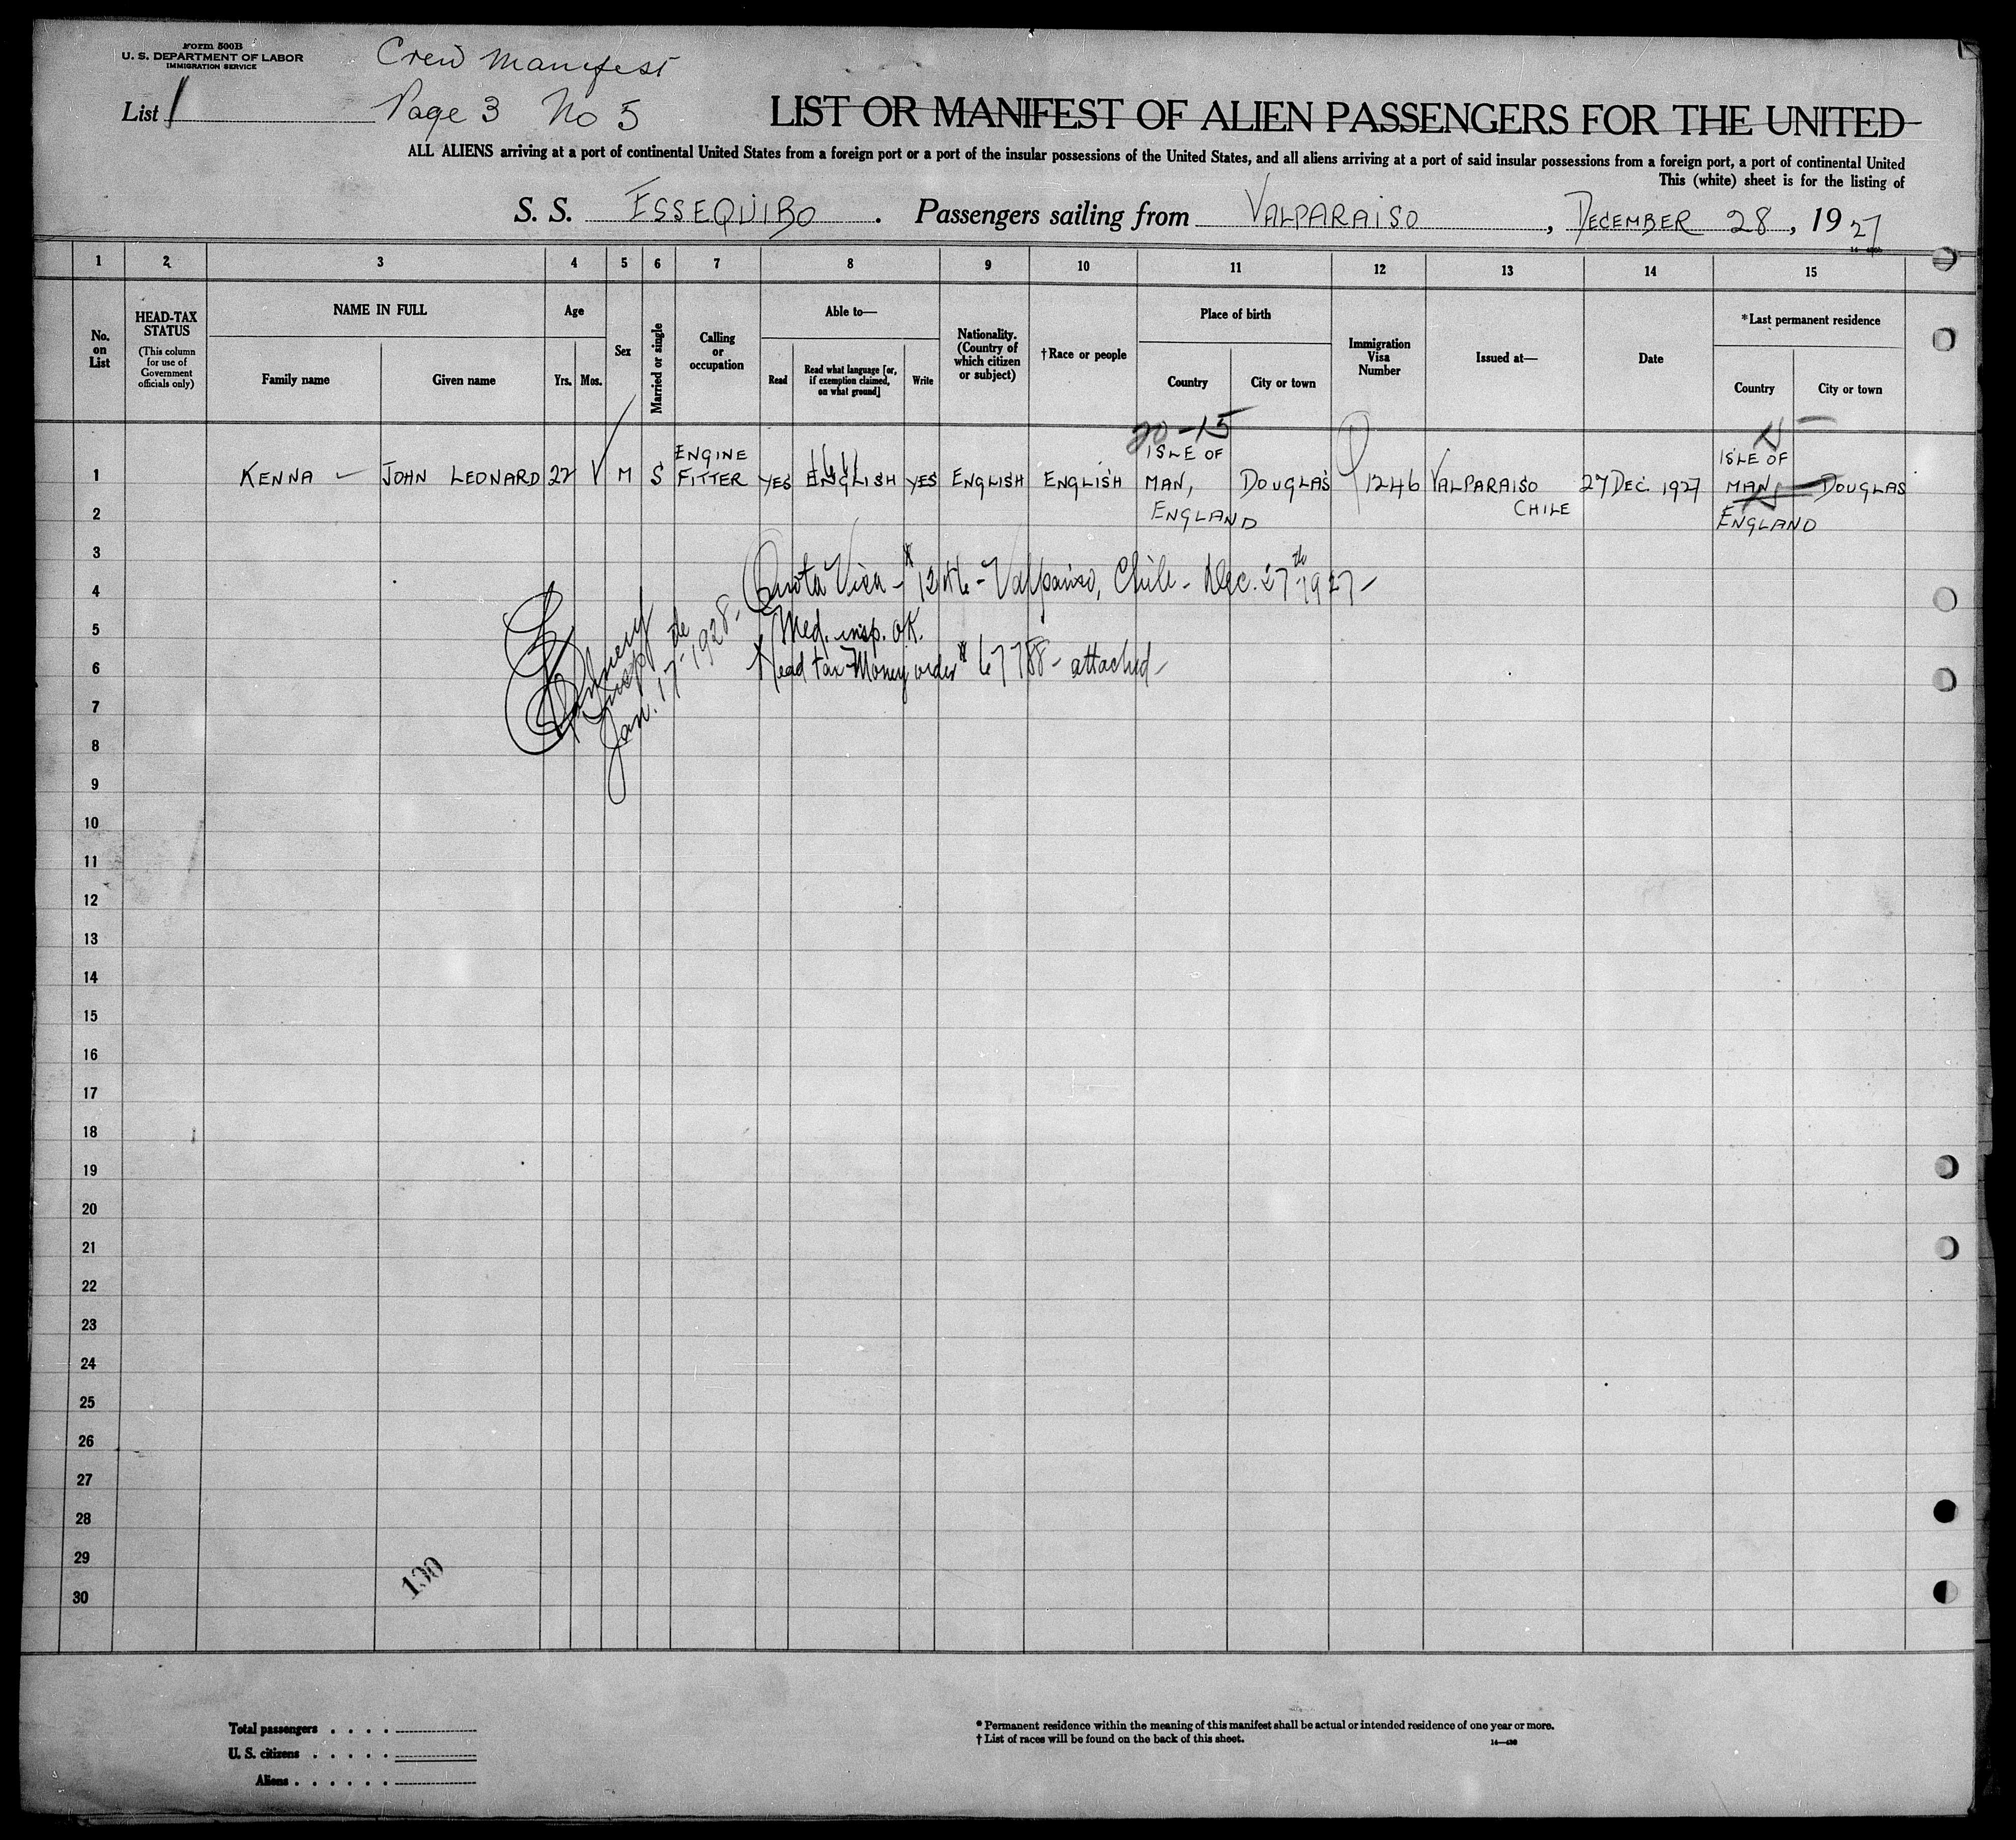 Form 500B
U. S. DEPARTMENT OF LABOR
IMMIGRATION SERVICE
Crew Manifest
List 1
Page 3 No 5
LIST OR MANIFEST OF ALIEN PASSENGERS FOR THE UNITED
ALL ALIENS arriving at a port of continental United States from a foreign port or a port of the insular possessions of the United States, and all aliens arriving at a port of said insular possessions from a foreign port, a port of continental United
This (white) sheet is for the listing of
S. S. ESSEQUIBO. Passengers sailing from VALPARAISO, DECEMBER 28, 1927
1 2 3 4 5 6 7 8 9 10 11 12 13 14 15
No. on List
HEAD-TAX STATUS
(This column for use of Government officials only)
NAME IN FULL
Family name
Given name
Age
Yrs.
Mos.
Sex
Married or single
Calling or occupation
Able to—
Read
Read what language [or, if exemption claimed, on what ground]
Write
Nationality. (Country of which citizen or subject)
†Race or people
Place of birth
Country
City or town
Immigration Visa Number
Issued at—
Date
*Last permanent residence
Country
City or town
20-15
1 KENNA JOHN LEONARD 22 M S ENGINE FITTER YES ENGLISH YES ENGLISH ENGLISH ISLE OF MAN, ENGLAND DOUGLAS 1246 VALPARAISO CHILE 27 DEC. 1927 ISLE OF MAN, ENGLAND DOUGLAS
2
3
Quota Visa - # 1246 - Valparaiso, Chile - Dec. 27th 1927 -
4
5
Med. insp. OK.
6
Head tax Money order # 67788 - attached -
Insp
Jan. 17th 1928 -
7
8
9
10
11
12
13
14
15
16
17
18
19
20
21
22
23
24
25
26
27
28
29
30
100
Total passengers . . . .
U. S. citizens . . . . .
Aliens . . . . . .
* Permanent residence within the meaning of this manifest shall be actual or intended residence of one year or more.
† List of races will be found on the back of this sheet.